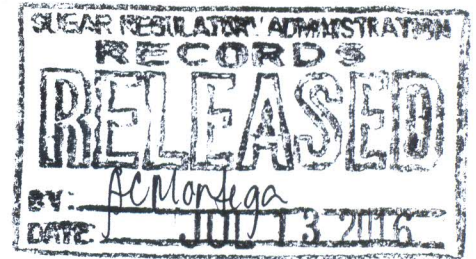 SUGAR REGULATORY ADMINISTRATION
RECORDS
RELEASED
BY: ACMontega
DATE: JUL 13 2016